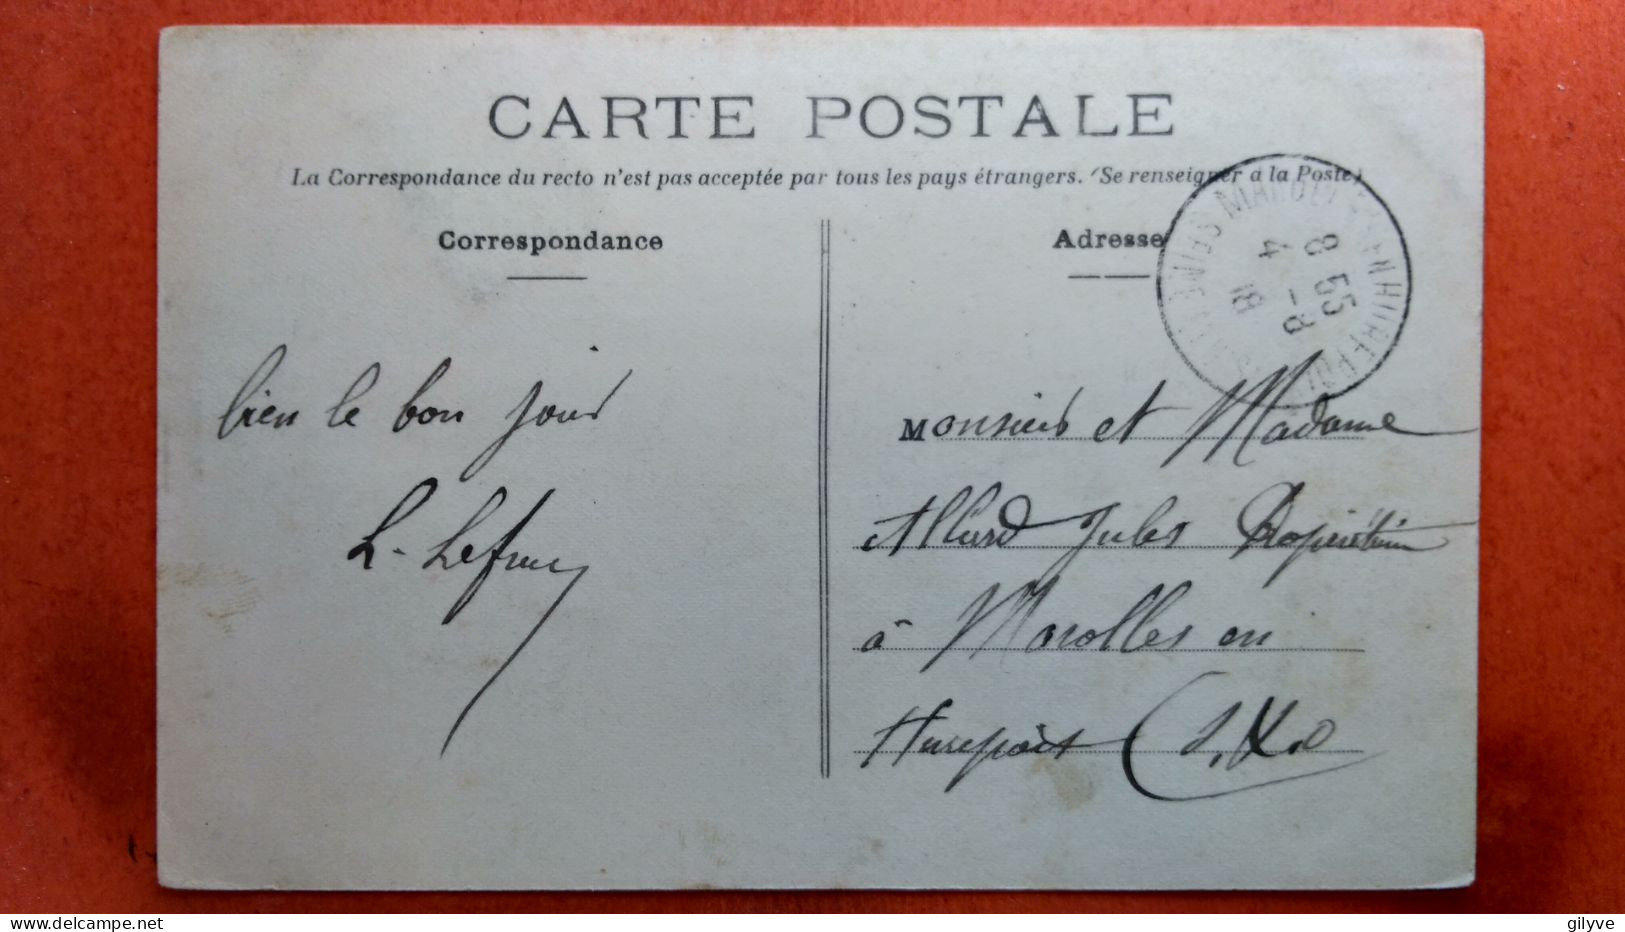 CARTE POSTALE
La Correspondance du recto n'est pas acceptée par tous les pays étrangers. (Se renseigner à la Poste)
Correspondance
Adresse
8 55
4 - 8
18
bien le bon jour
L. Lefr
Monsieur et Madame
Allard Jules Propriétaire
à Marolles en
Hurepoix (S.&.O
delcampe.net
gilyve